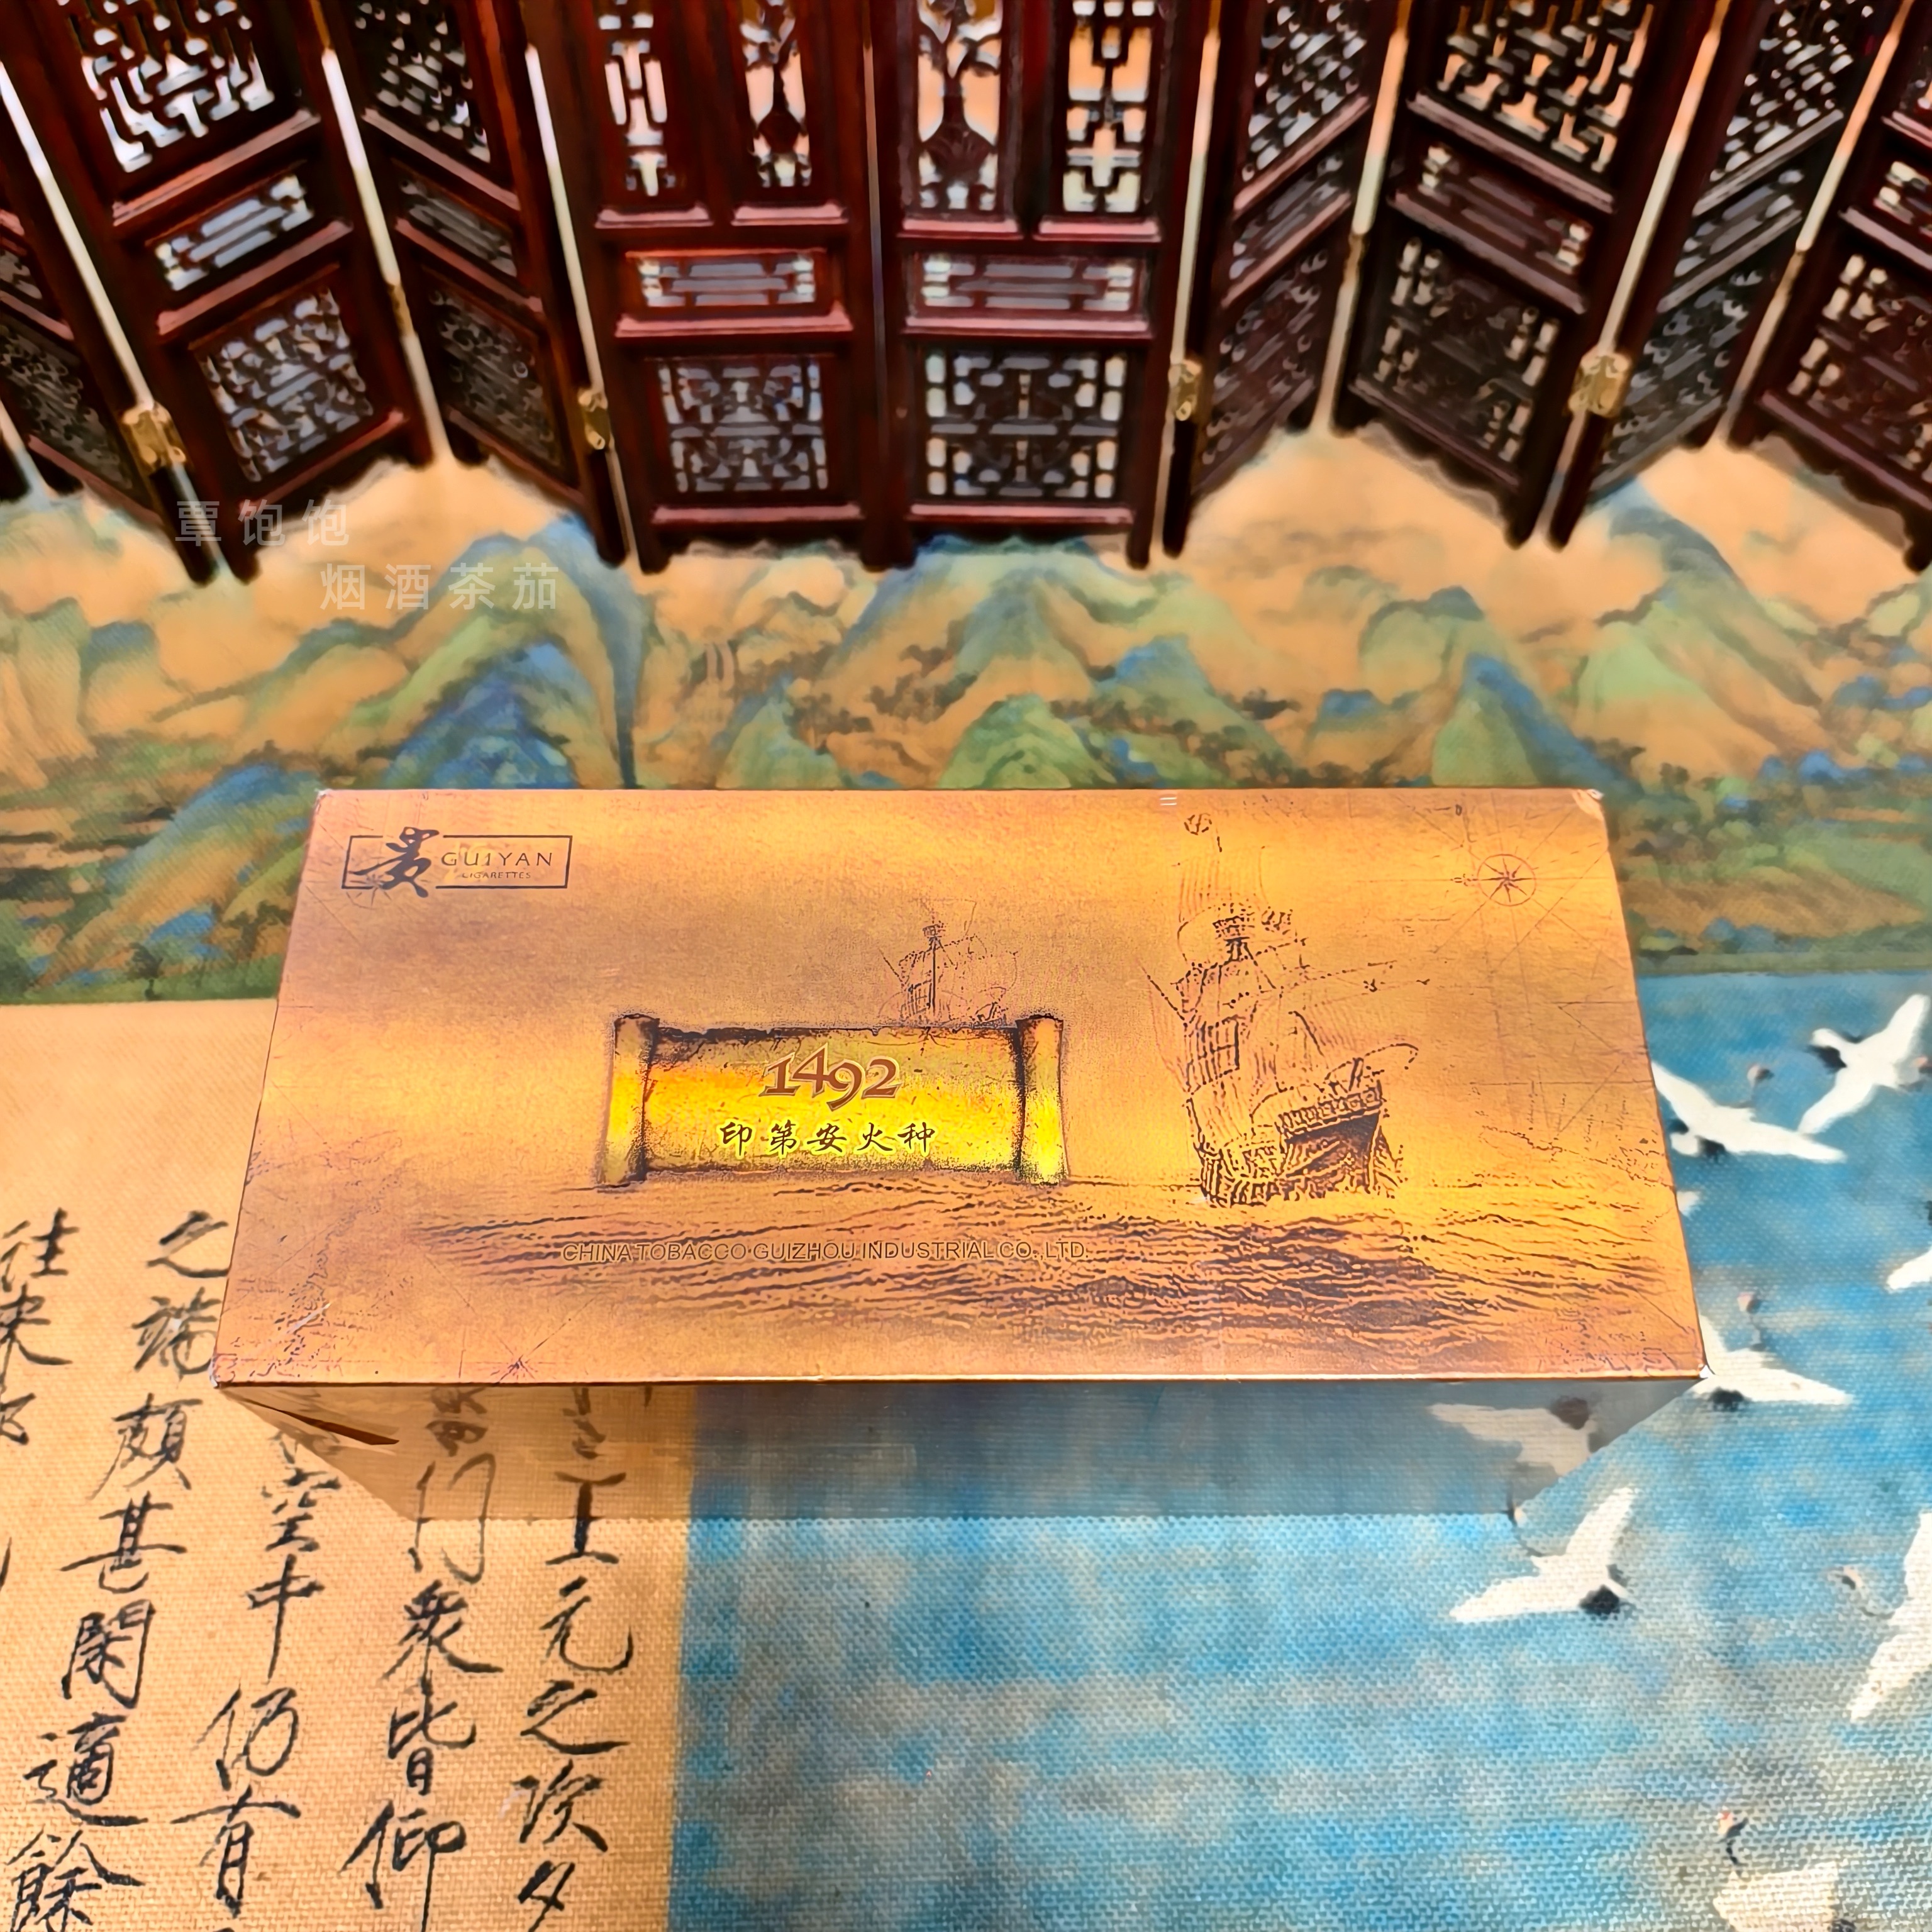 覃饱饱
烟酒茶茄
贵
GUIYAN
CIGARETTES
1492
印第安火种
CHINA TOBACCO GUIZHOU INDUSTRIAL CO.,LTD.
上元之次夕
门眾皆仰
空中仍有
之端頗甚閑適餘
往来